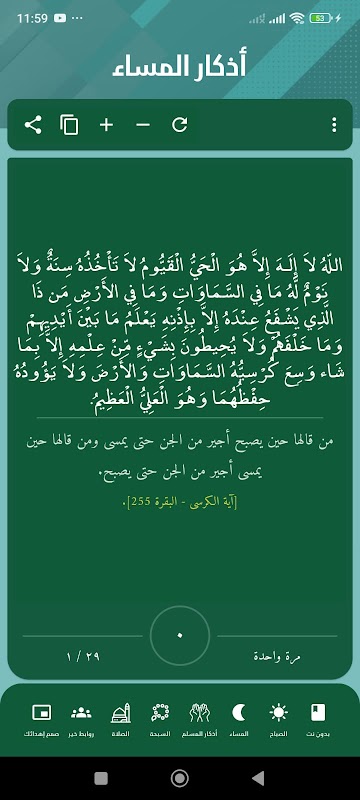 11:59
53
أذكار المساء
اللّهُ لاَ إِلَـهَ إِلاَّ هُوَ الْحَيُّ الْقَيُّومُ لاَ تَأْخُذُهُ سِنَةٌ وَلاَ
نَوْمٌ لَّهُ مَا فِي السَّمَاوَاتِ وَمَا فِي الأَرْضِ مَن ذَا
الَّذِي يَشْفَعُ عِنْدَهُ إِلاَّ بِإِذْنِهِ يَعْلَمُ مَا بَيْنَ أَيْدِيهِمْ
وَمَا خَلْفَهُمْ وَلاَ يُحِيطُونَ بِشَيْءٍ مِّنْ عِلْمِهِ إِلاَّ بِمَا
شَاء وَسِعَ كُرْسِيُّهُ السَّمَاوَاتِ وَالأَرْضَ وَلاَ يَؤُودُهُ
حِفْظُهُمَا وَهُوَ الْعَلِيُّ الْعَظِيمُ.
من قالها حين يصبح أجير من الجن حتى يمسى ومن قالها حين
يمسى أجير من الجن حتى يصبح.
[آية الكرسى - البقرة 255].
٠
مرة واحدة
٢٩ / ١
بدون نت
الصباح
المساء
أذكار المسلم
السبحة
الصلاة
روابط خير
صمم إهدائك